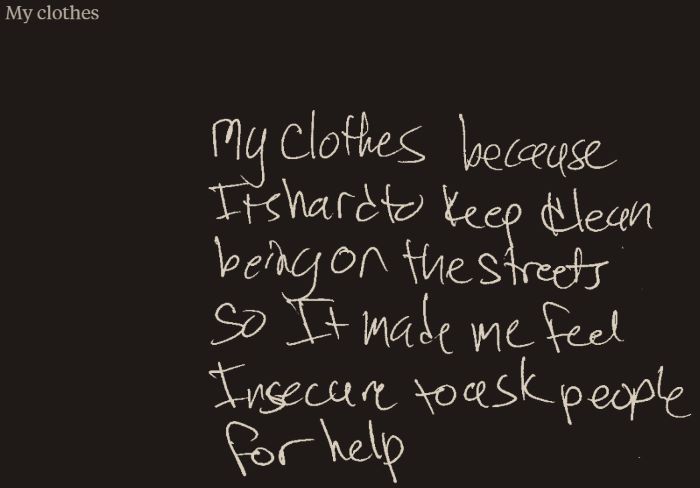 My clothes
My clothes because
It's hard to keep clean
being on the streets
so It made me feel
Insecure to ask people
for help